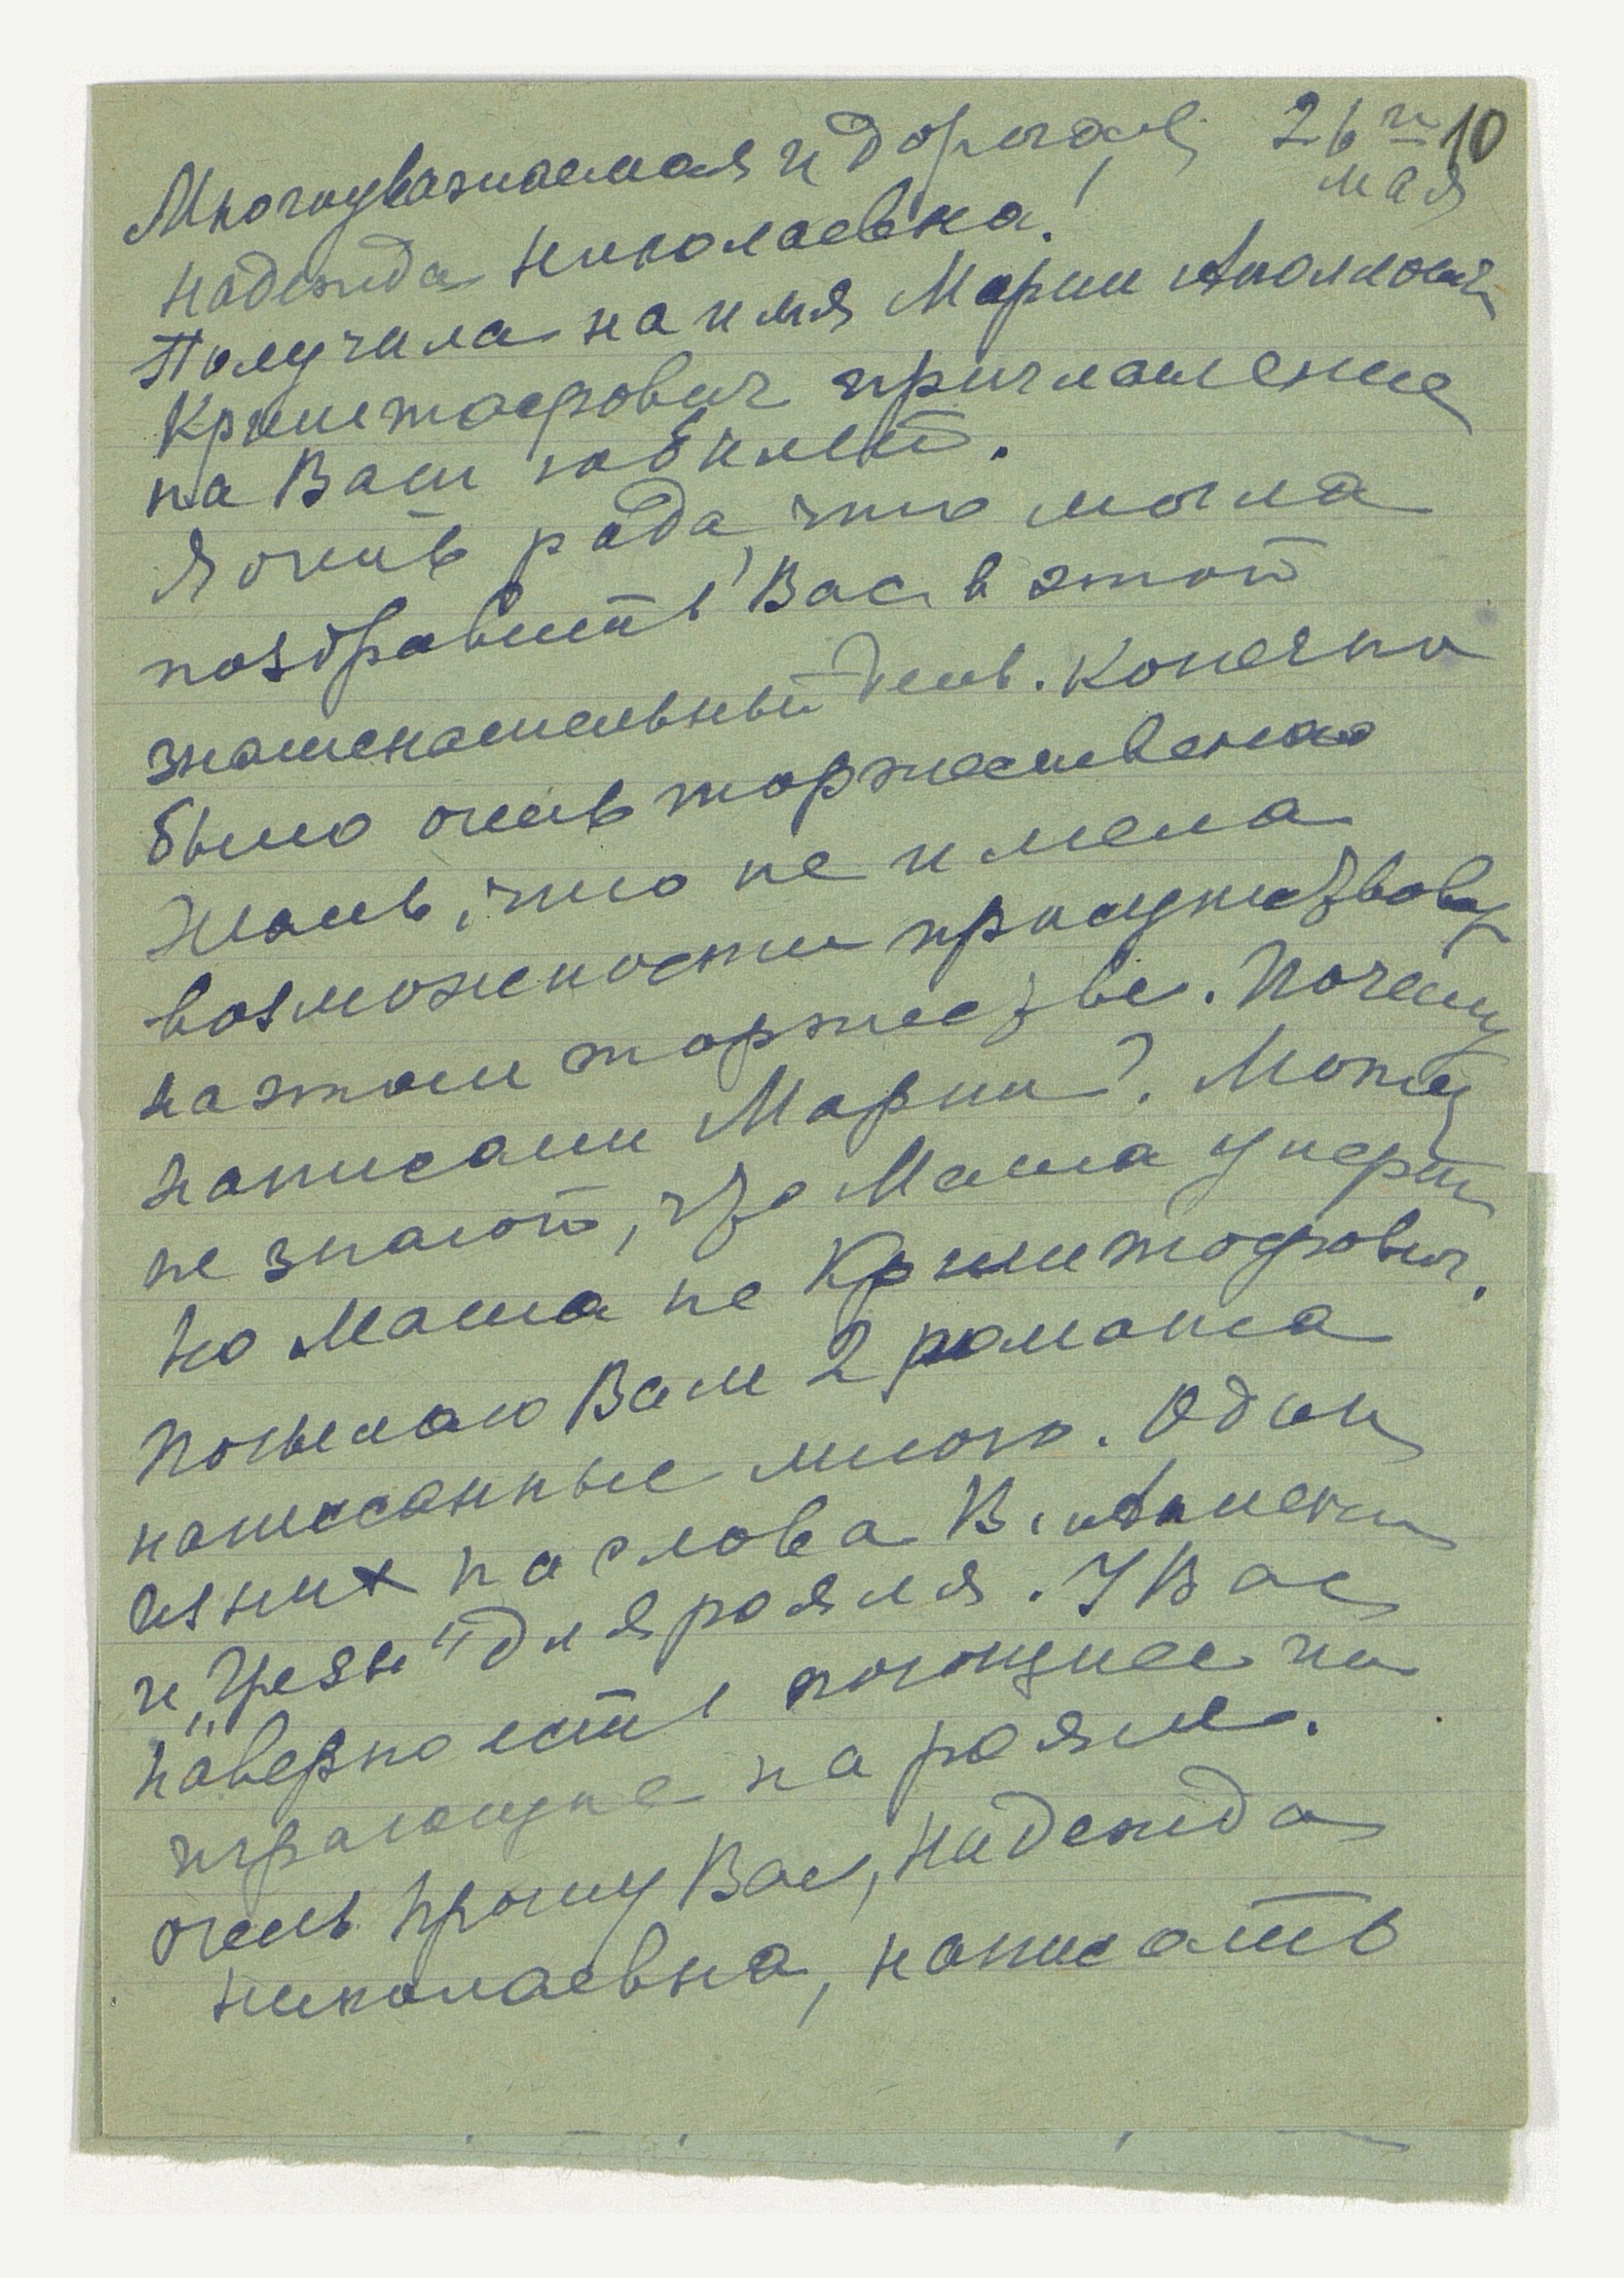 26го 10
мая
Многоуважаемая и дорогая,
Надежда Николаевна!
Получила на имя Марии
Криштофович приглашение
на Ваш юбилей.
Я очень рада, что могла
поздравить Вас в этот
знаменательный день. Конечно
было очень торжественно
Жаль, что не имела
возможности присутствовать
на этом торжестве. Почему
написали Марии? Может
не знают, что Маша умерла
Но Маша не Криштофович.
Посылаю Вам 2 романса
написанные мною. Один
из них на слова В.
и „Грезы" для рояля. У Вас
наверно есть поющие ии
играющие на рояле.
Очень прошу Вас, Надежда
Николаевна, написать